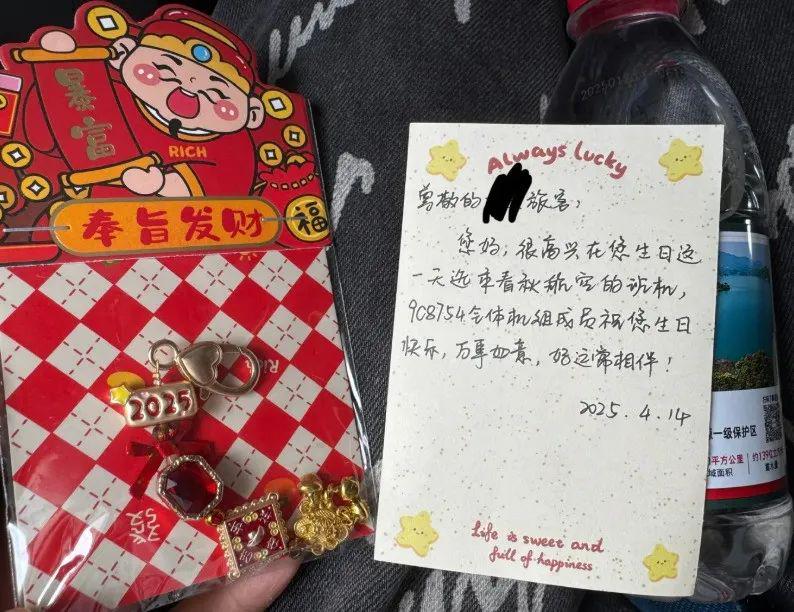 暴富
RICH
奉旨发财
福
2025
Always lucky
尊敬的 旅客:
您好,很高兴在您生日这
一天选乘春秋航空的航班,
9C8754全体机组成员祝您生日
快乐,万事如意,好运常相伴!
2025.4.14
Life is sweet and
full of happiness
一级保护区
平方公里
域面积
约139亿立方
蓄水量